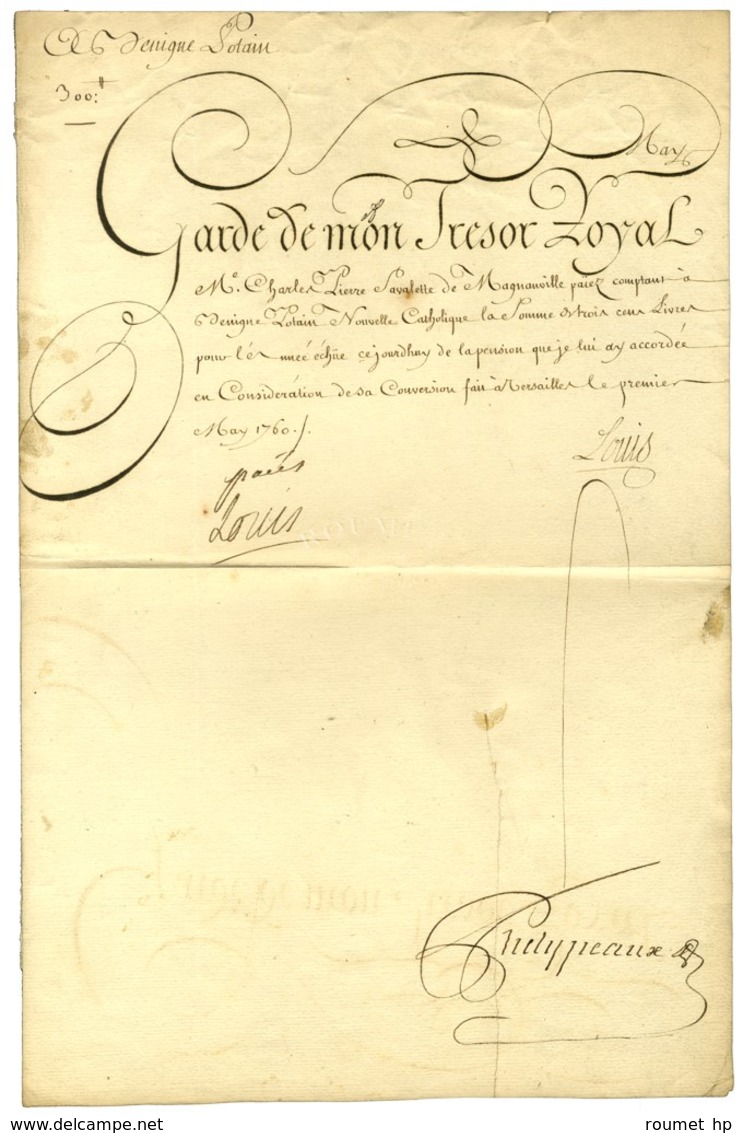 Benigne Potain
300:ᵗᵗ
May
Garde de mon Tresor Royal
Mᵉ. Charles Pierre Savalette de Magnanville païez comptant à
Benigne Potain Nouvelle Catholique la Somme de trois cens Livres
pour l'année échüe cejourdhuy de la pension que je lui ay accordée
en Considération de sa Conversion fait à Versailles le premier
May 1760 ./.
Louis
païés
Louis
Phelypeaux
www.delcampe.net
roumet hp